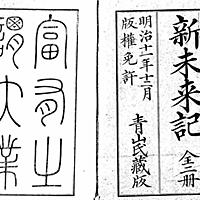 新未来記 全二冊
青山氏藏版
明治十一年十二月
版權免許
富有之
謂大業